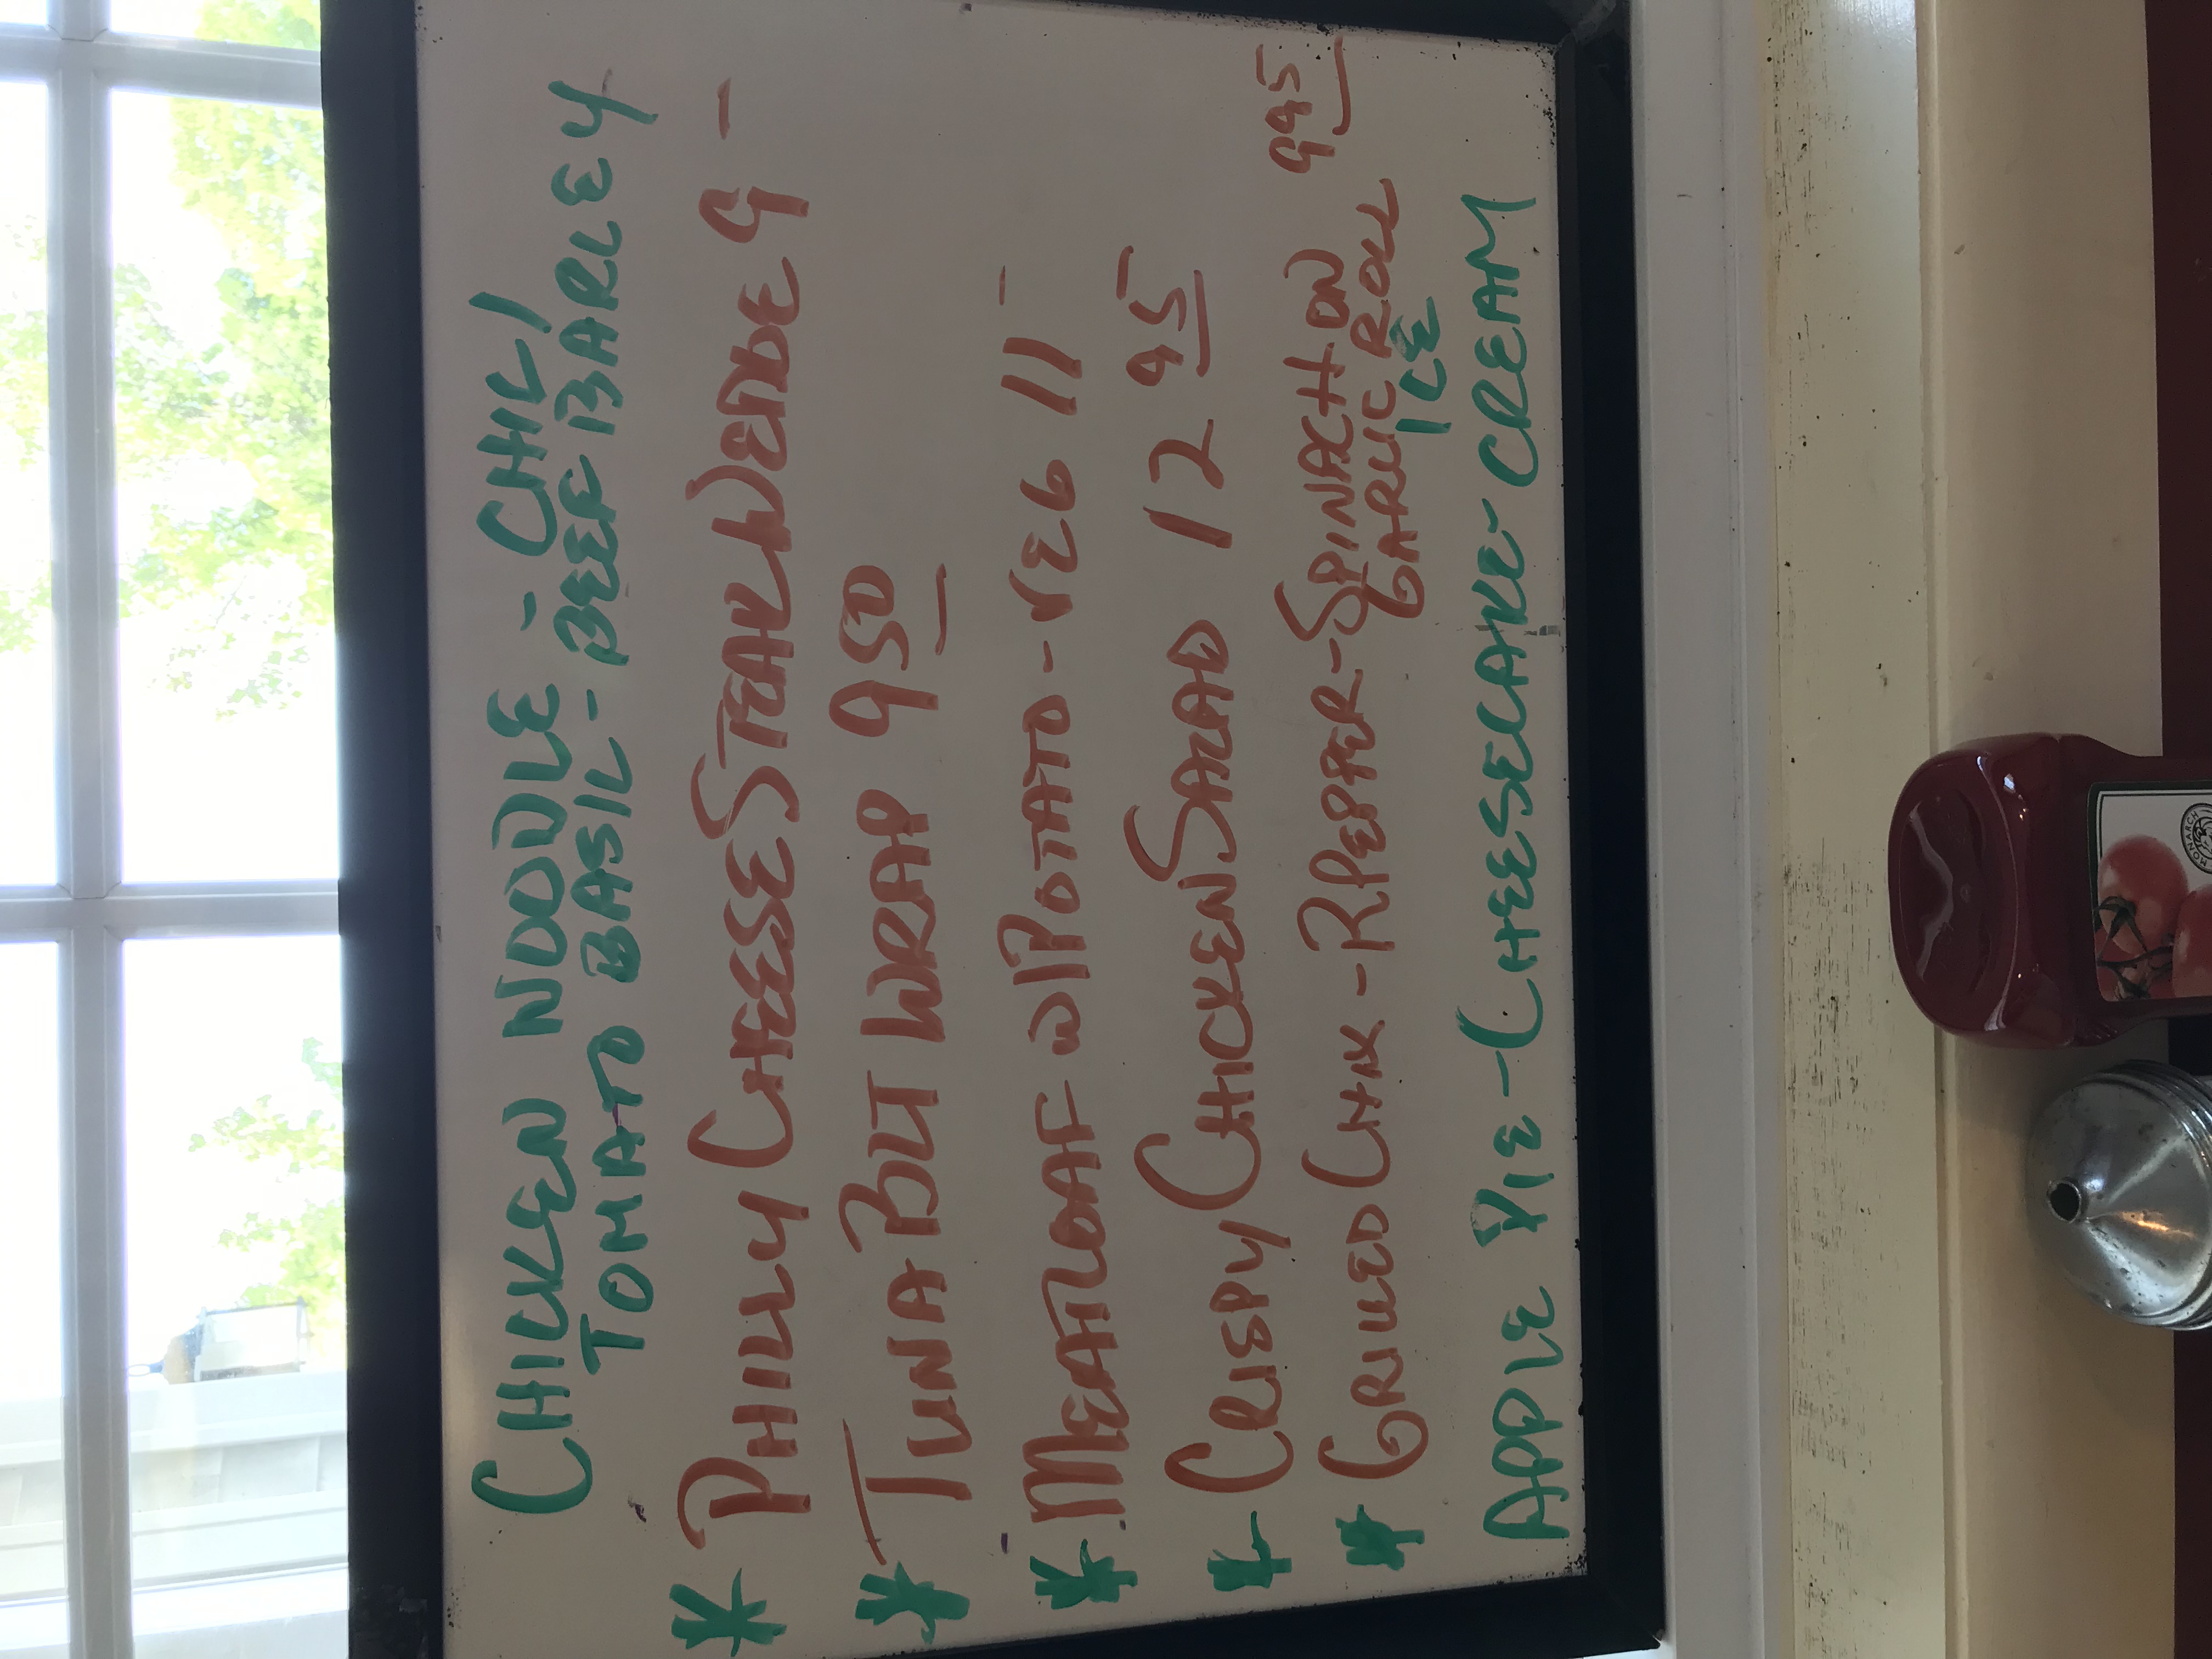 CHICKEN NOODLE - CHILI
TOMATO BASIL - BEEF BARLEY
* PHILLY CHEESE STEAK WEDGE 9 -
* TUNA BLT WRAP 9 50
* MEATLOAF W/ POTATO - VEG 11 -
* CRISPY CHICKEN SALAD 12 95
* GRILLED CHIX - R PEPPER - SPINACH ON 9 95
GARLIC ROLL
ICE
APPLE PIE - CHEESECAKE - CREAM
MONARCH